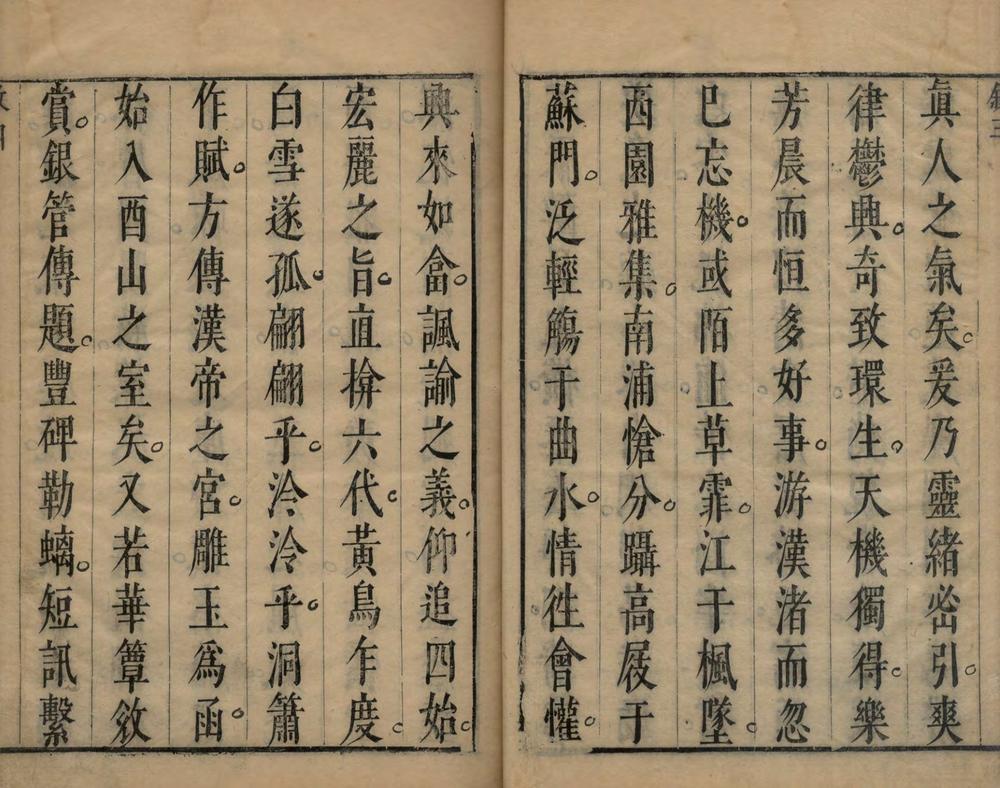 眞人之氣矣。爰乃靈緒密引。爽
律鬱興。奇致環生。天機獨得。樂
芳晨而恒多好事。游漢渚而忽
已忘機。或陌上草霏。江干楓墜。
西園雅集。南浦愴分。躡高屐于
蘇門。泛輕觴于曲水。情徃會懽。
興來如畣。諷諭之義。仰追四始。
宏麗之旨。直揜六代。黃鳥乍度。
白雪遂孤。翩翩乎。泠泠乎。洞簫
作賦。方傳漢帝之宮。雕玉爲函。
始入酉山之室矣。又若華簟敘
賞。銀管傳題。豐碑勒螭。短訊繫